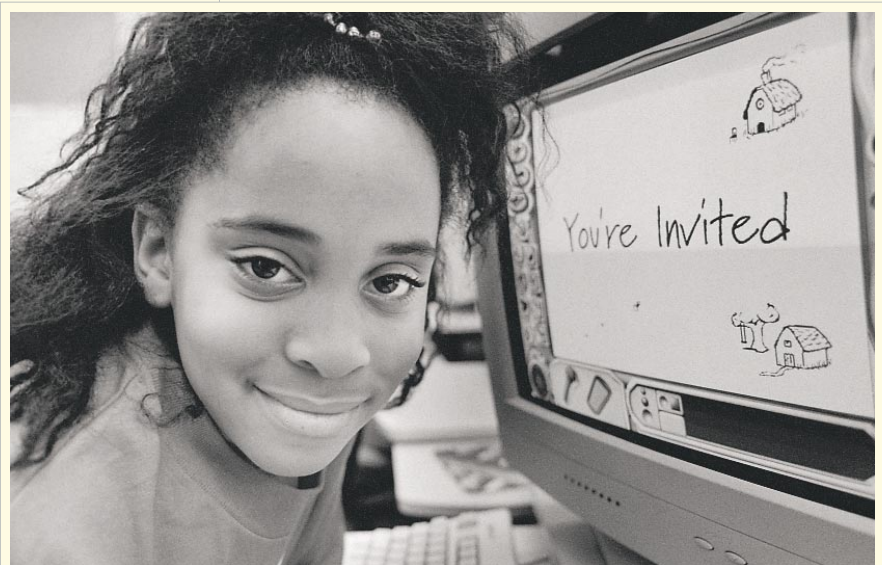 You're Invited